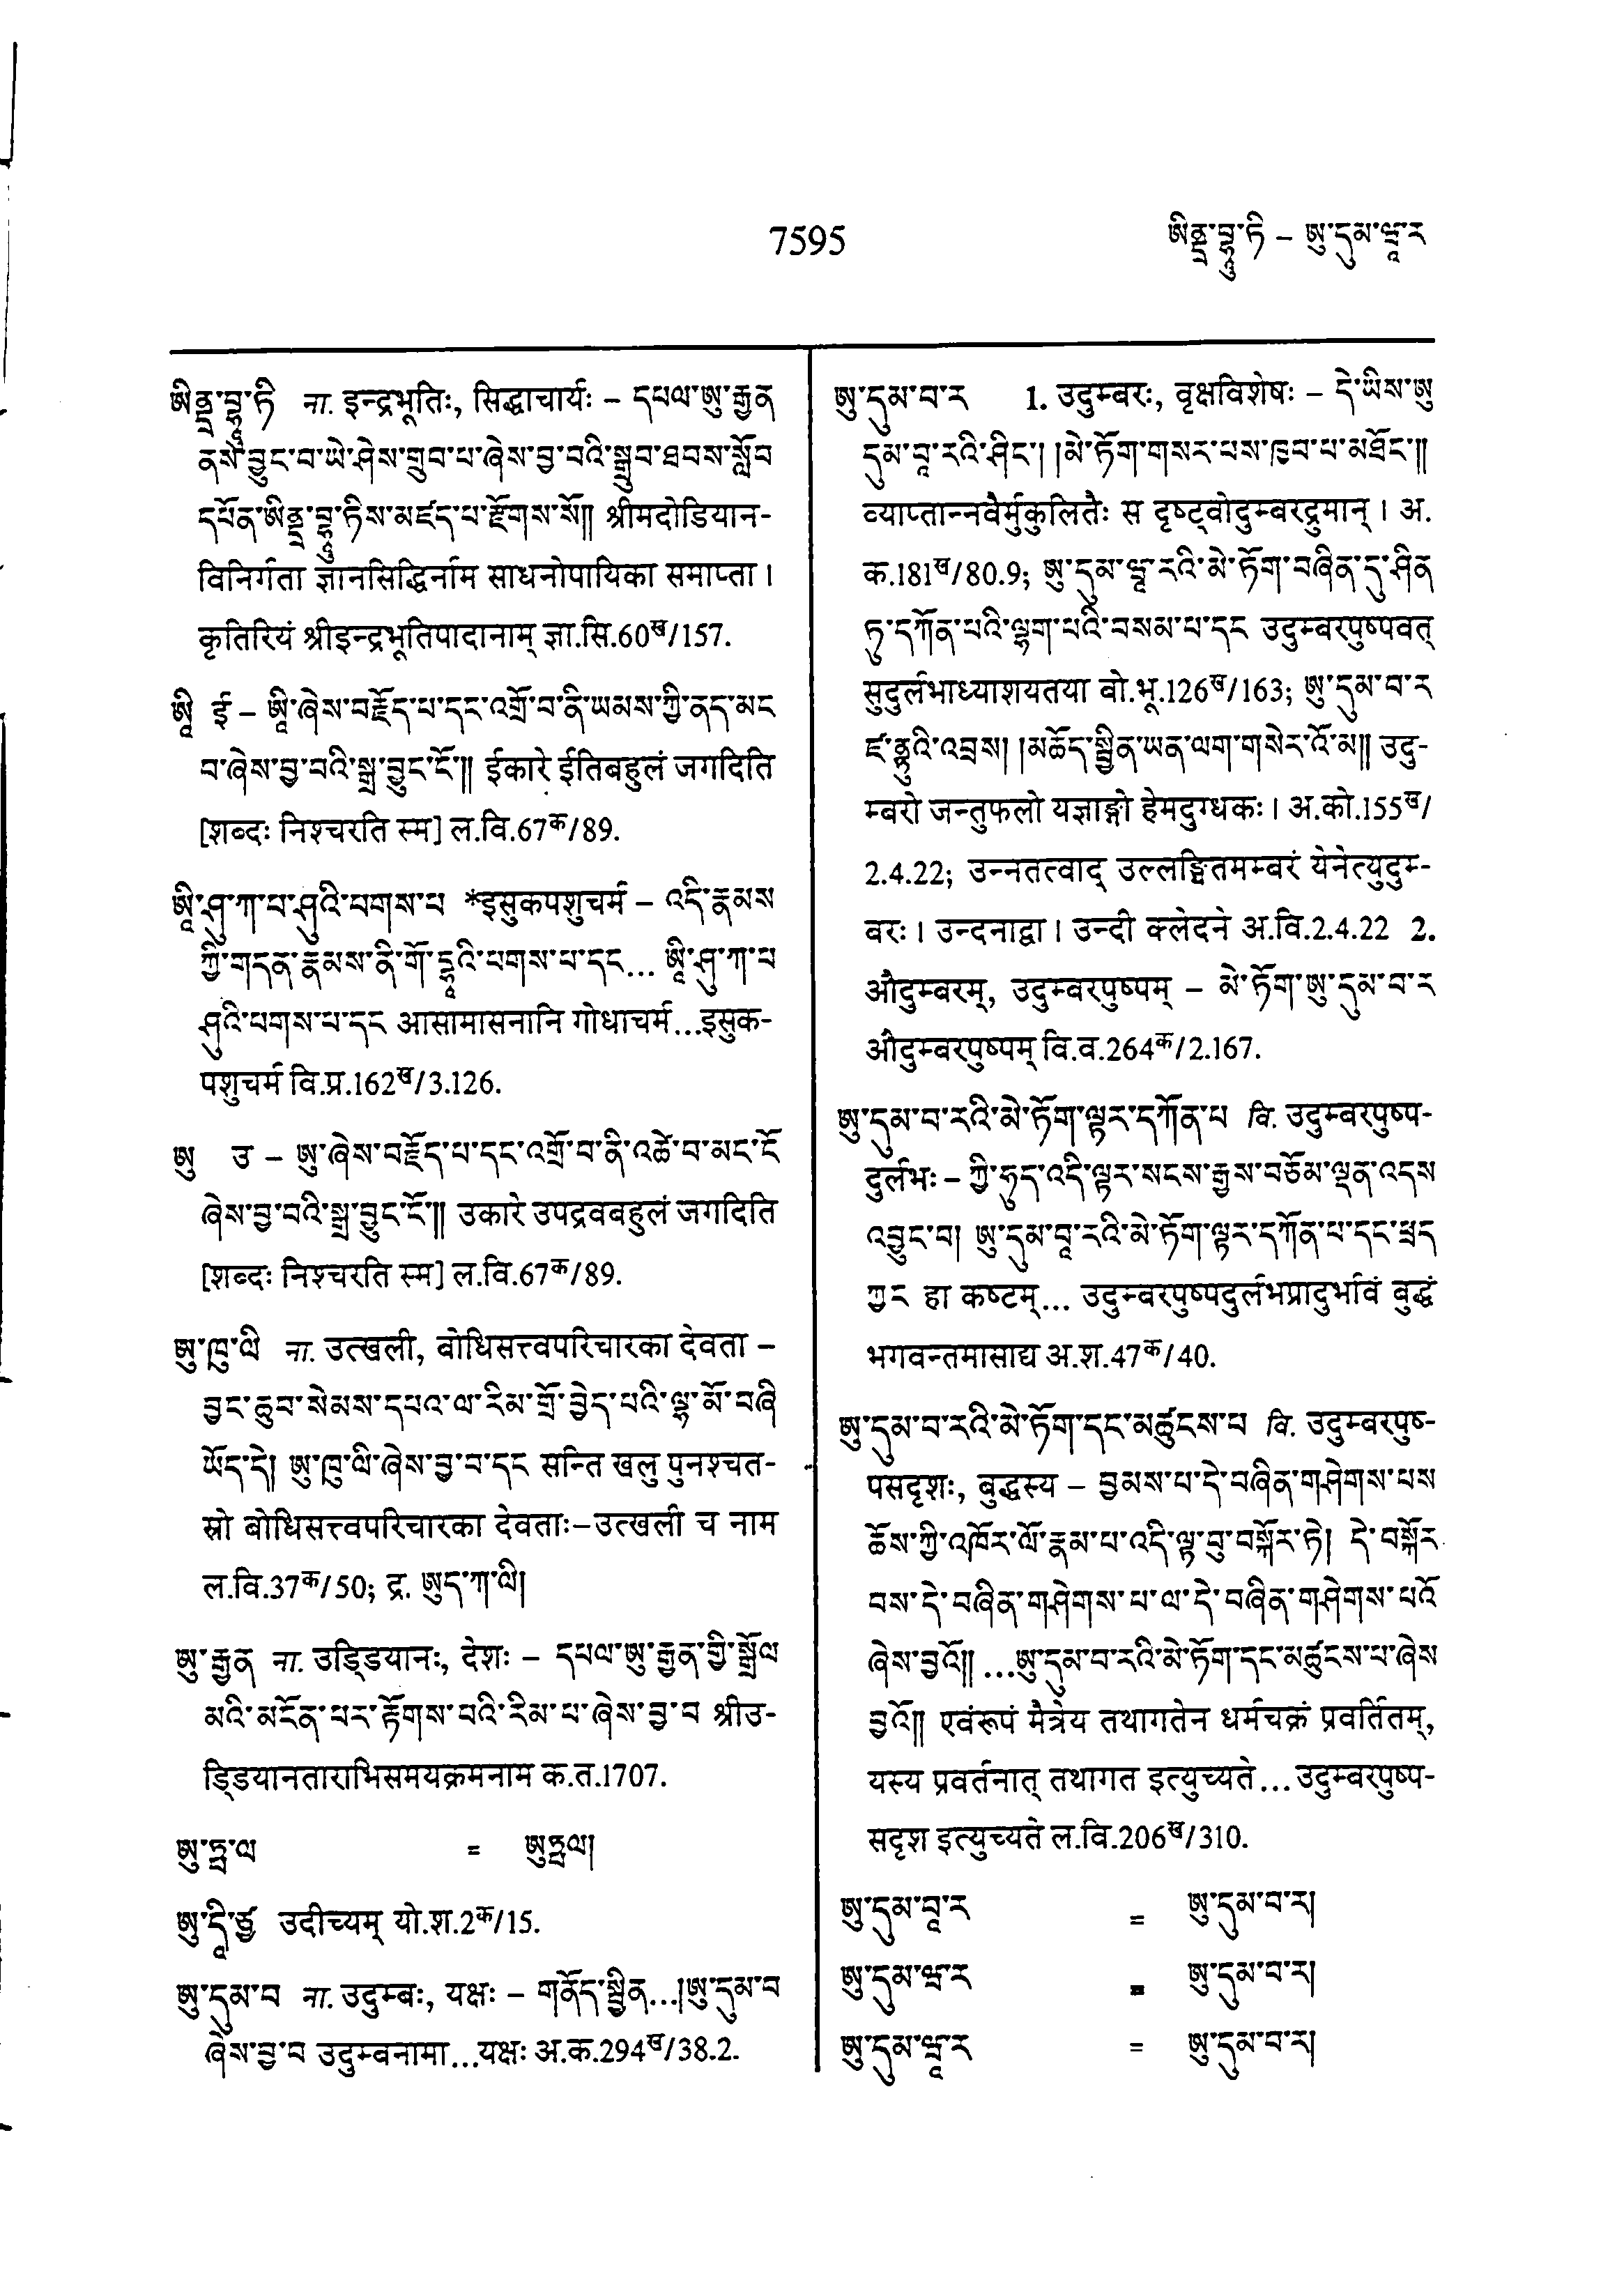 7595
ཨིནྡྲ་བྷཱུ་ཏི – ཨུ་དུམ་ཝཱ་ར
ཨིནྡྲ་བྷཱུ་ཏི ना. इन्द्रभूतिः, सिद्धाचार्यः – དཔལ་ཨུ་རྒྱན
ནས་བྱུང་བ་ཡེ་ཤེས་གྲུབ་པ་ཞེས་བྱ་བའི་སྒྲུབ་ཐབས་སློབ
དཔོན་ཨིནྡྲ་བྷཱུ་ཏིས་མཛད་པ་རྫོགས་སོ།། श्रीमदोडियान-
विनिर्गता ज्ञानसिद्धिर्नाम साधनोपायिका समाप्ता ।
कृतिरियं श्रीइन्द्रभूतिपादानाम् ज्ञा.सि.60ख/157.
ཨཱི ई – ཨཱི་ཞེས་བརྗོད་པ་དང་འགྲོ་བ་ནི་ཡམས་ཀྱི་ནད་མང
བ་ཞེས་བྱ་བའི་སྒྲ་བྱུང་ངོ་།། ईकारे ईतिबहुलं जगदिति
[शब्दः निश्चरति स्म] ल.वि.67क/89.
ཨཱི་ཤུ་ཀ་པ་ཤུའི་པགས་པ *इसुकपशुचर्म – འདི་རྣམས
ཀྱི་གདན་རྣམས་ནི་གོ་དྷཱའི་པགས་པ་དང... ཨཱི་ཤུ་ཀ་པ
ཤུའི་པགས་པ་དང आसामासनानि गोधाचर्म...इसुक-
पशुचर्म वि.प्र.162ख/3.126.
ཨུ उ – ཨུ་ཞེས་བརྗོད་པ་དང་འགྲོ་བ་ནི་འཚེ་བ་མང་ངོ
ཞེས་བྱ་བའི་སྒྲ་བྱུང་ངོ་།། उकारे उपद्रवबहुलं जगदिति
[शब्दः निश्चरति स्म] ल.वि.67क/89.
ཨུ་ཁུ་ལི ना. उत्खली, बोधिसत्त्वपरिचारका देवता –
བྱང་ཆུབ་སེམས་དཔའ་ལ་རིམ་གྲོ་བྱེད་པའི་ལྷ་མོ་བཞི
ཡོད་དེ། ཨུ་ཁུ་ལི་ཞེས་བྱ་བ་དང सन्ति खलु पुनश्चत-
स्रो बोधिसत्त्वपरिचारका देवताः–उत्खली च नाम
ल.वि.37क/50; द्र. ཨུད་ཀ་ལི།
ཨུ་རྒྱན ना. उड्डियानः, देशः – དཔལ་ཨུ་རྒྱན་གྱི་སྒྲོལ
མའི་མངོན་པར་རྟོགས་པའི་རིམ་པ་ཞེས་བྱ་བ श्रीउ-
ड्डियानताराभिसमयक्रमनाम क.त.1707.
ཨུ་ཏྤ་ལ = ཨུཏྤལ།
ཨུ་དཱི་ཙྱ उदीच्यम् यो.श.2क/15.
ཨུ་དུམ་བ ना. उदुम्बः, यक्षः – གནོད་སྦྱིན...།ཨུ་དུམ་བ
ཞེས་བྱ་བ उदुम्बनामा...यक्षः अ.क.294ख/38.2.
ཨུ་དུམ་བ་ར 1. उदुम्बरः, वृक्षविशेषः – དེ་ཡིས་ཨུ
དུམ་བཱ་རའི་ཤིང་། །མེ་ཏོག་གསར་པས་ཁྱབ་པ་མཐོང་།།
व्याप्तान्नवैर्मुकुलितैः स दृष्ट्वोदुम्बरद्रुमान् । अ.
क.181ख/80.9; ཨུ་དུམ་ཝཱ་རའི་མེ་ཏོག་བཞིན་དུ་ཤིན
ཏུ་དཀོན་པའི་ལྷག་པའི་བསམ་པ་དང उदुम्बरपुष्पवत्
सुदुर्लभाध्याशयतया बो.भू.126ख/163; ཨུ་དུམ་བ་ར
ཛ་ནྟུའི་འབྲས། །མཆོད་སྦྱིན་ཡན་ལག་གསེར་འོ་མ།། उदु-
म्बरो जन्तुफलो यज्ञाङ्गो हेमदुग्धकः । अ.को.155ख/
2.4.22; उन्नतत्वाद् उल्लङ्घितमम्बरं येनेत्युदुम्-
बरः । उन्दनाद्वा । उन्दी क्लेदने अ.वि.2.4.22 2.
औदुम्बरम्, उदुम्बरपुष्पम् – མེ་ཏོག་ཨུ་དུམ་བ་ར
औदुम्बरपुष्पम् वि.व.264क/2.167.
ཨུ་དུམ་བ་རའི་མེ་ཏོག་ལྟར་དཀོན་པ वि. उदुम्बरपुष्प-
दुर्लभः – ཀྱི་ཧུད་འདི་ལྟར་སངས་རྒྱས་བཅོམ་ལྡན་འདས
འབྱུང་བ། ཨུ་དུམ་བཱ་རའི་མེ་ཏོག་ལྟར་དཀོན་པ་དང་ཕྲད
ཀྱང हा कष्टम्... उदुम्बरपुष्पदुर्लभप्रादुर्भावं बुद्धं
भगवन्तमासाद्य अ.श.47क/40.
ཨུ་དུམ་བ་རའི་མེ་ཏོག་དང་མཚུངས་པ वि. उदुम्बरपुष्-
पसदृशः, बुद्धस्य – བྱམས་པ་དེ་བཞིན་གཤེགས་པས
ཆོས་ཀྱི་འཁོར་ལོ་རྣམ་པ་འདི་ལྟ་བུ་བསྐོར་ཏེ། དེ་བསྐོར
བས་དེ་བཞིན་གཤེགས་པ་ལ་དེ་བཞིན་གཤེགས་པའོ
ཞེས་བྱའོ།། ...ཨུ་དུམ་བ་རའི་མེ་ཏོག་དང་མཚུངས་པ་ཞེས
བྱའོ།། एवंरूपं मैत्रेय तथागतेन धर्मचक्रं प्रवर्तितम्,
यस्य प्रवर्तनात् तथागत इत्युच्यते...उदुम्बरपुष्प-
सदृश इत्युच्यते ल.वि.206ख/310.
ཨུ་དུམ་བཱ་ར = ཨུ་དུམ་བ་ར།
ཨུ་དུམ་ཝ་ར = ཨུ་དུམ་བ་ར།
ཨུ་དུམ་ཝཱ་ར = ཨུ་དུམ་བ་ར།